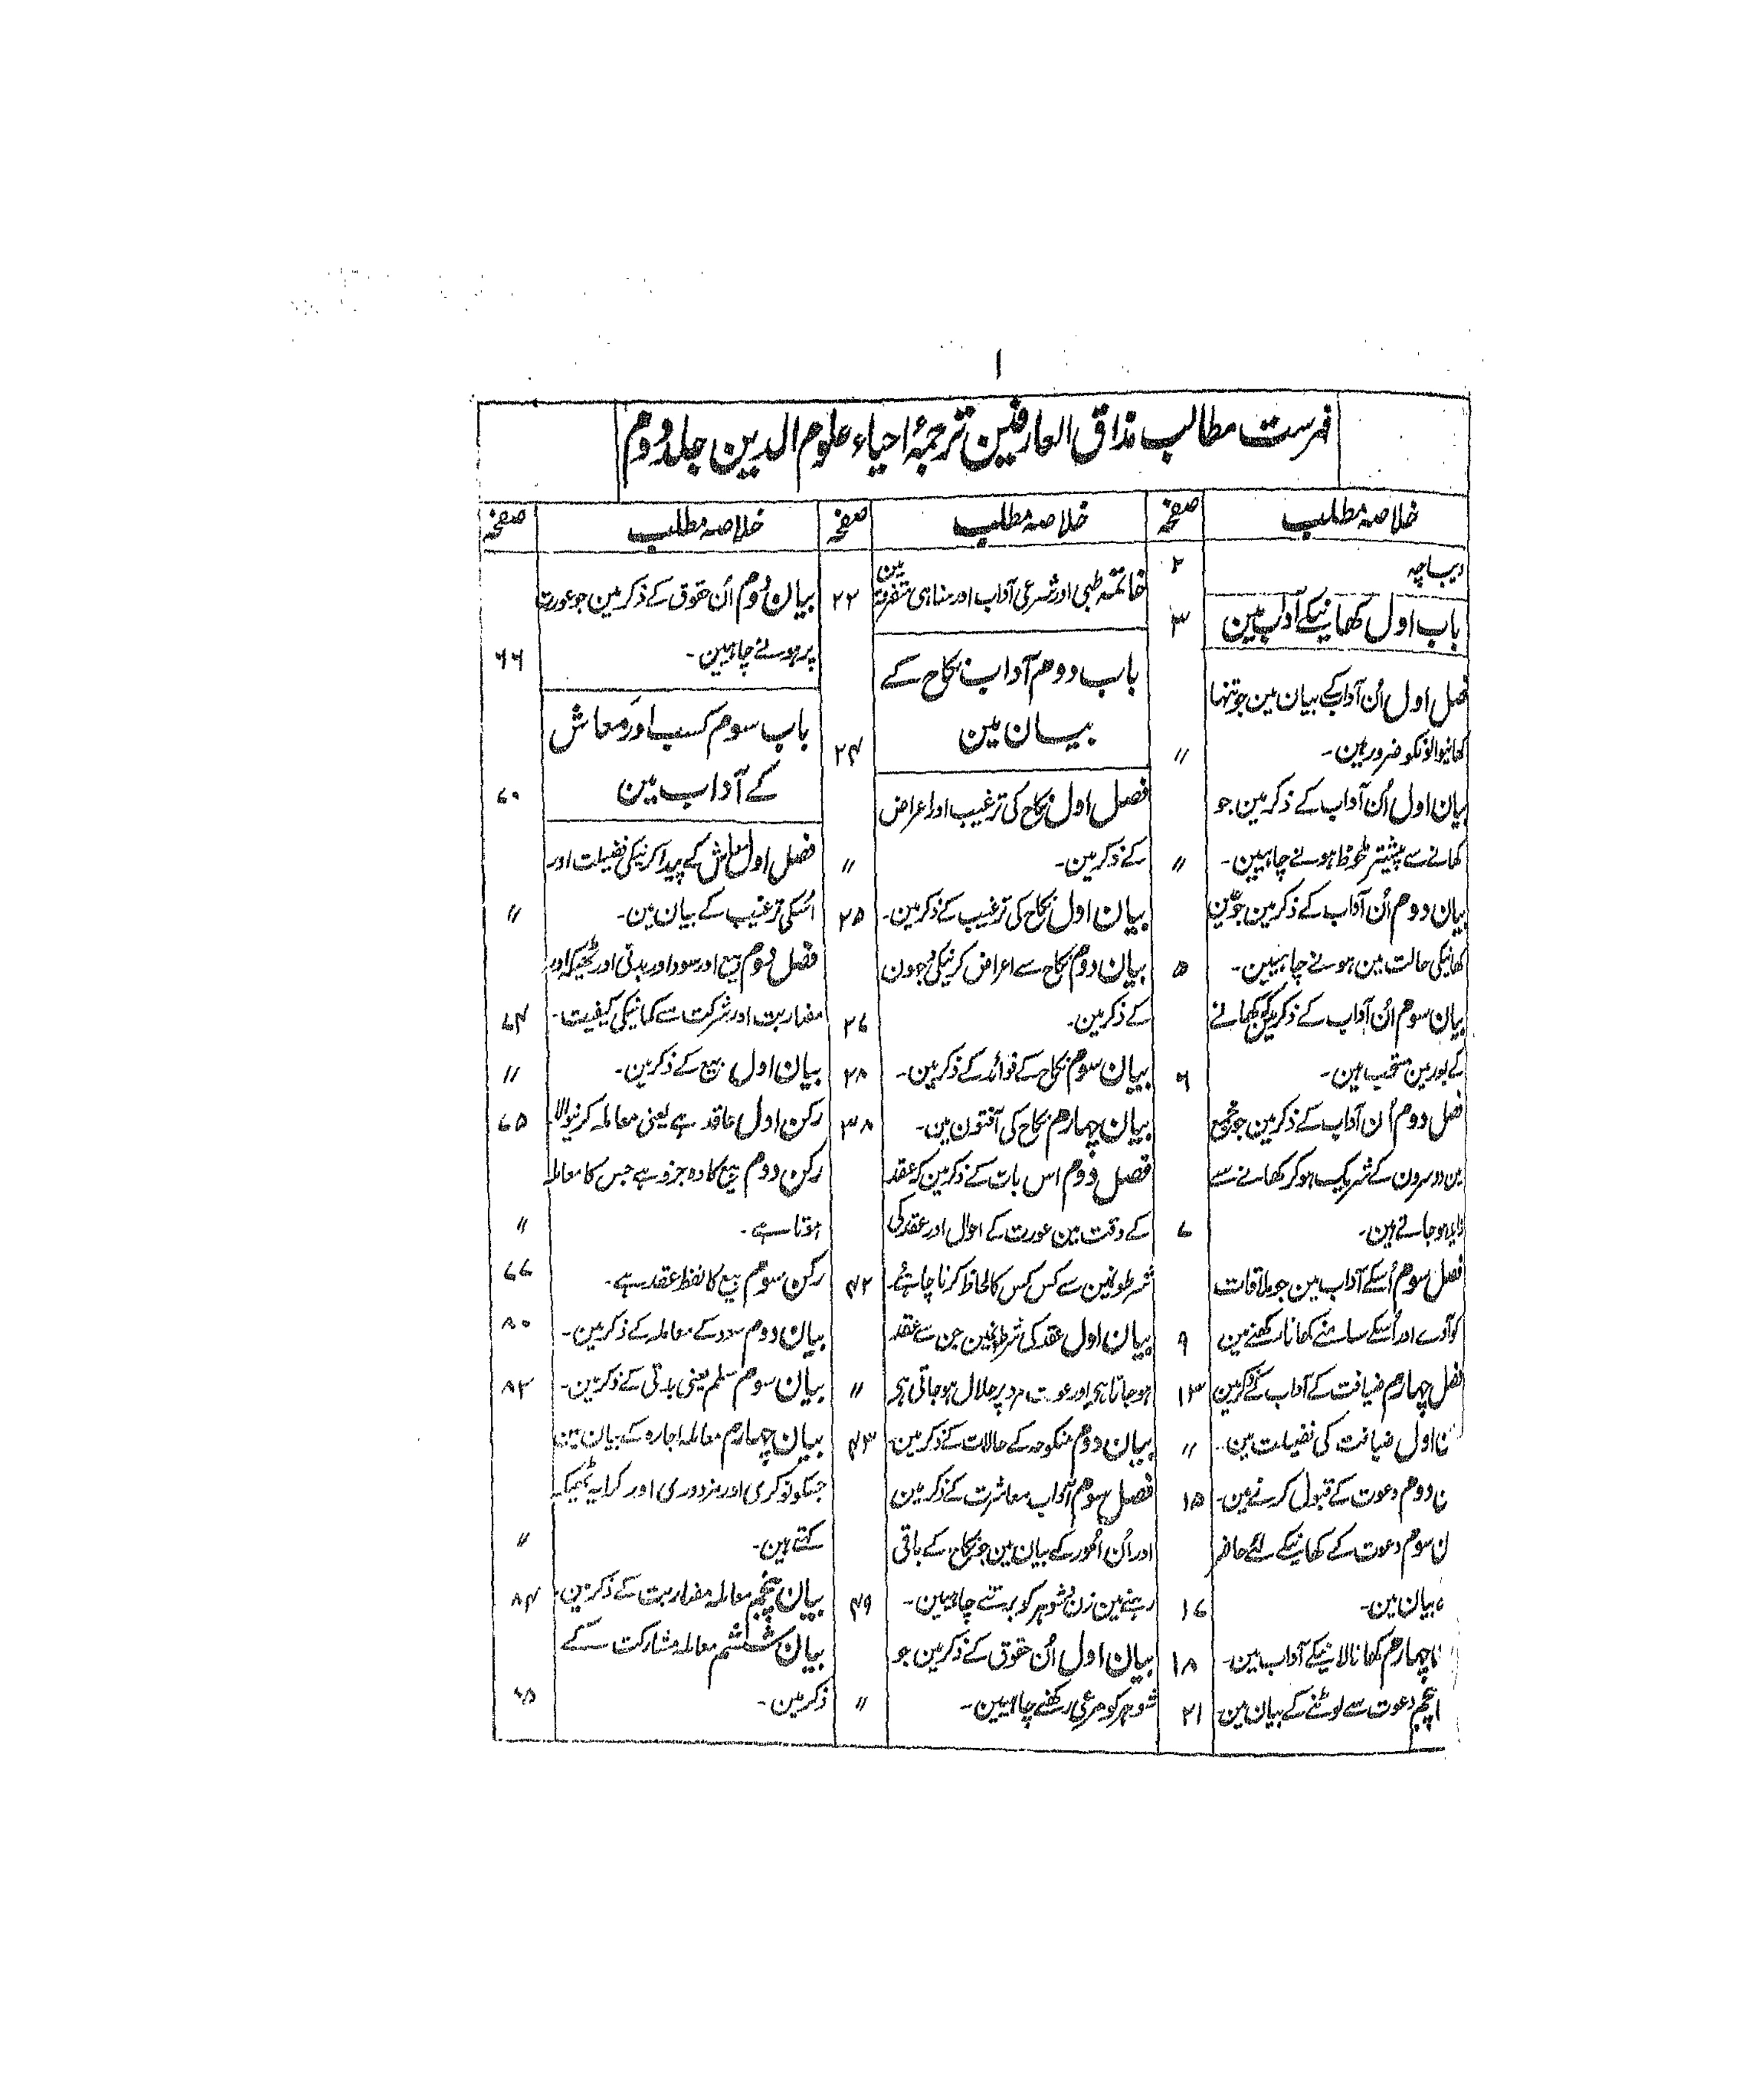 ۱
فہرست مطالب مذاق العارفین ترجمۂ احیاء علوم الدین جلد دوم
خلاصہ مطلب
صفحہ
دیباچہ
۲
باب اول کھانیکے آداب مین
۳
فصل اول اُن آدابکے بیان مین جو تنہا
کھانیوالونکو ضرور ہین۔
〃
بیان اول اُن آداب کے ذکر مین جو
کھانے سے پیشتر ملحوظ ہونے چاہیین۔
〃
بیان دوم اُن آداب کے ذکر مین جو عین
کھانیکی حالت مین ہونے چاہییں۔
۵
بیان سوم اُن آداب کے ذکر مین کہ کھانے
کے بعد مین مستحب ہین۔
۶
فصل دوم اُن آداب کے ذکر مین جو مجمع
مین دوسرون کے شریک ہو کر کھانے سے
زاید ہو جاتے ہین۔
۷
فصل سوم اُسکے آداب مین جو ملاقات
کو آوے اور اُسکے سامنے کھانا رکھنے مین
۹
فصل چہارم ضیافت کے آداب کے ذکر مین
۱۳
ن اول ضیافت کی فضیلت مین۔
〃
ن دوم دعوت کے قبول کرنے مین۔
۱۵
ن سوم دعوت کے کھانیکے لئے حاضر
بیان مین۔
۱۷
چہارم کھانا لانیکے آداب مین۔
۱۸
پنجم دعوت سے لوٹنے کے بیان مین
۲۱
خلاصہ مطلب
صفحہ
خاتمہ طبی اور شرعی آداب اور مناہی متفرقہ مین
۲۲
باب دوم آداب نکاح کے
بیان مین
۲۴
فصل اول نکاح کی ترغیب اور اعراض
کے ذکر مین۔
〃
بیان اول نکاح کی ترغیب کے ذکر مین۔
۲۵
بیان دوم نکاح سے اعراض کرنیکی وجہون
کے ذکر مین۔
۲۷
بیان سوم نکاح کے فوائد کے ذکر مین۔
۲۸
بیان چہارم نکاح کی آفتون مین۔
۳۸
فصل دوم اس بات کے ذکر مین کہ عقد
کے وقت مین عورت کے احوال اور عقد کی
شرطونمین سے کس کس کا لحاظ کرنا چاہئے۔
۴۲
بیان اول عقد کی شرطونمین جن سے عقد
ہو جاتا ہی اور عورت مرد پر حلال ہو جاتی ہی
〃
بیان دوم منکوحہ کے حالات کے ذکر مین۔
۴۳
فصل سوم آداب معاشرت کے ذکر مین
اور اُن امور کے بیان مین جو نکاح کے باقی
رہنے مین زن و شوہر کو برتنے چاہیین۔
۴۹
بیان اول اُن حقوق کے ذکر مین جو
شوہر کو مرعی رکھنے چاہییں۔
〃
خلاصہ مطلب
صفحہ
بیان دوم اُن حقوق کے ذکر مین جو عورت
پر ہونے چاہیین۔
۶۶
باب سوم کسب اور معاش
کے آداب مین
۷۰
فصل اول معاش کے پیدا کرنیکی فضیلت اور
اُسکی ترغیب کے بیان مین۔
〃
فصل دوم بیع اور سود اور بدنی اور ٹھیکہ اور
مضاربت اور شرکت سے کمانیکی کیفیت۔
۷۴
بیان اول بیع کے ذکر مین۔
〃
رکن اول عاقد ہے یعنی معاملہ کرنیوالا
۷۵
رکن دوم بیع کا وہ جزو ہے جس کا معاملہ
ہوتا ہے۔
〃
رکن سوم بیع کا لفظ عقد ہے۔
۷۷
بیان دوم سود کے معاملہ کے ذکر مین۔
۸۰
بیان سوم سلم یعنی بدنی کے ذکر مین۔
۸۲
بیان چہارم معاملہ اجارہ کے بیان مین
جسکو نوکری اور مزدوری اور کرایہ ٹھیکہ
کہتے ہین۔
〃
بیان پنجم معاملہ مضاربت کے ذکر مین۔
۸۴
بیان ششم معاملہ مشارکت کے
ذکر مین۔